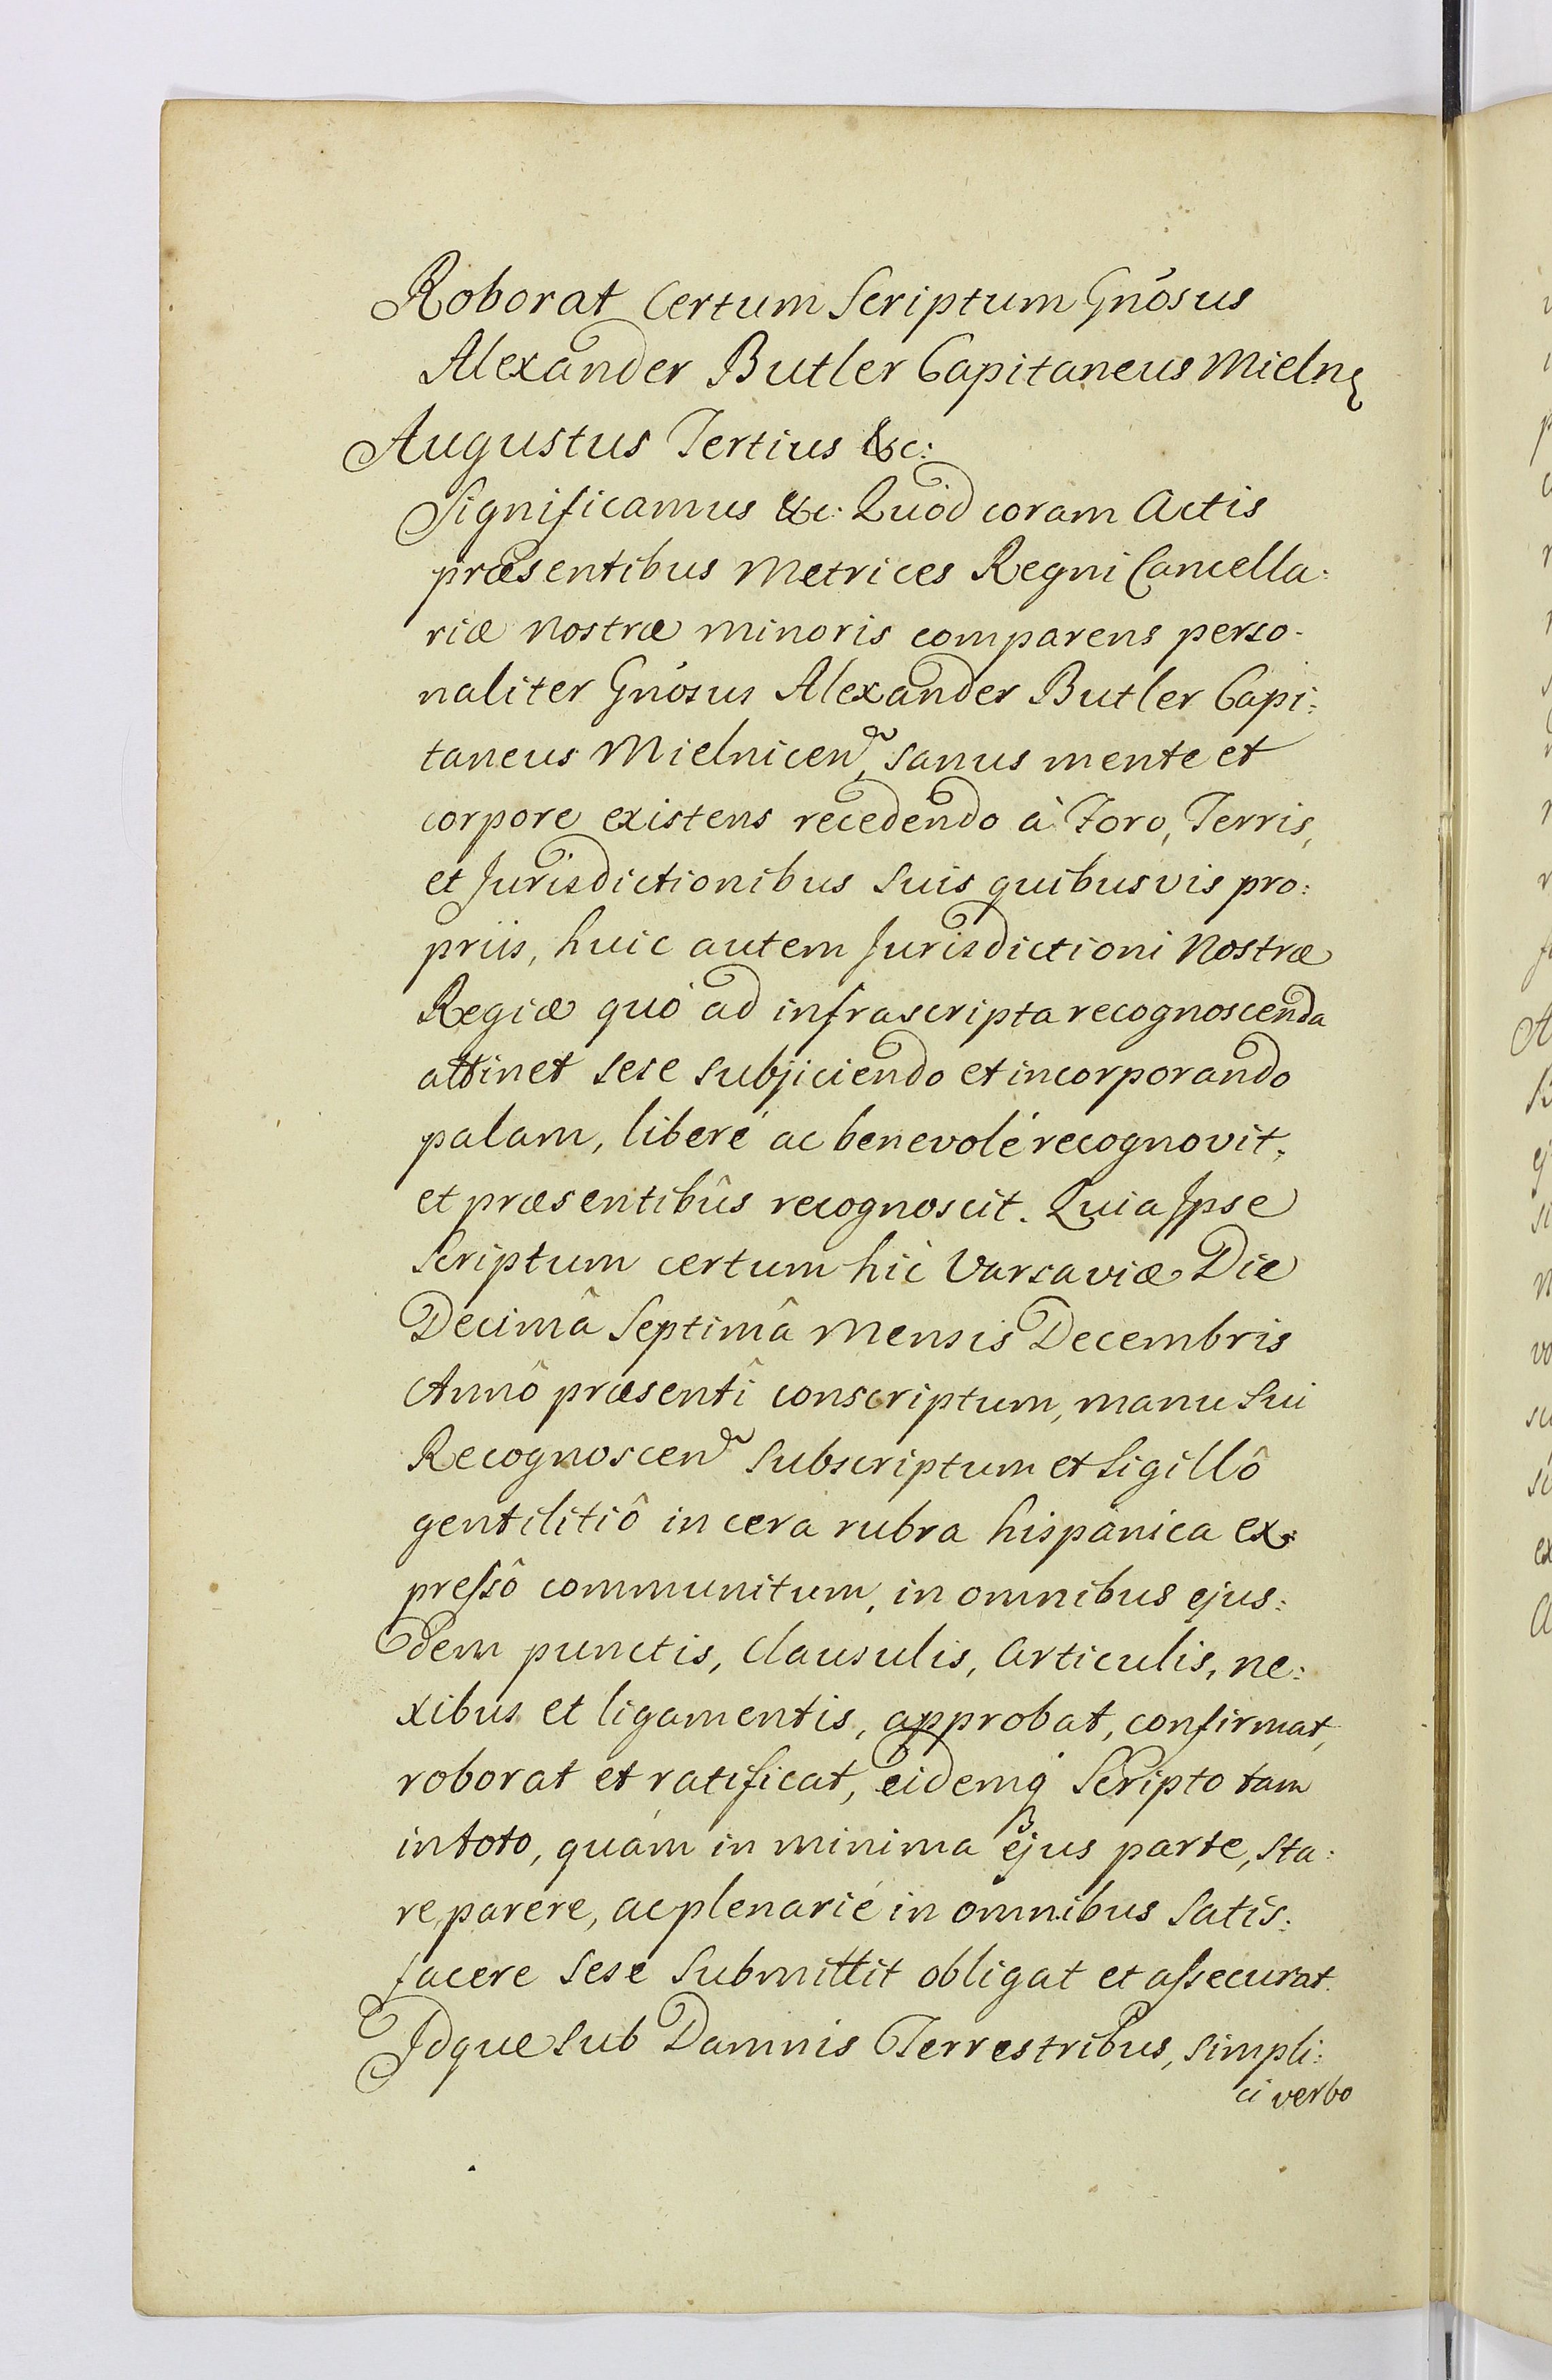 Roborat Certum Scriptum Gnosus
Alexander Butler Capitaneus Mieln
Augustus Tertius &c:
Significamus &c. Quòd coram Actis
præsentibus Metrices Regni Cancella:
riæ Nostræ minoris comparens perso-
naliter Gnosus Alexander Butler Capi:
taneus Mielnicen, sanus mente et
corpore existens recedendo à Foro, Terris,
et Jurisdictionibus suis quibusvis pro:
priis, huic autem Jurisdictioni Nostræ
Regiæ quò ad infrascripta recognoscenda
attinet sese subjiciendo et incorporando
palam, liberè ac benevolè recognovit,
et præsentibûs recognoscit. Quia Jpse
Scriptum certum hìc Varsaviæ Die
Decimâ Septimâ Mensis Decembris
Annô præsentî conscriptum, manu sui
Recognoscen subscriptum et Sigillô
gentilitiô in cera rubra hispanica ex:
preſsô communitum, in omnibus ejus:
dem punctis, clausulis, articulis, ne:
xibus et ligamentis, approbat, confirmat,
roborat et ratificat, eidemq Scripto tam
in toto, quàm in minima ejus parte, sta:
re, parere, ac plenariè in omnibus satis:
facere sese submittit obligat et aſsecurat.
Jdque sub Damnis Terrestribus, simpli:
ci verbo